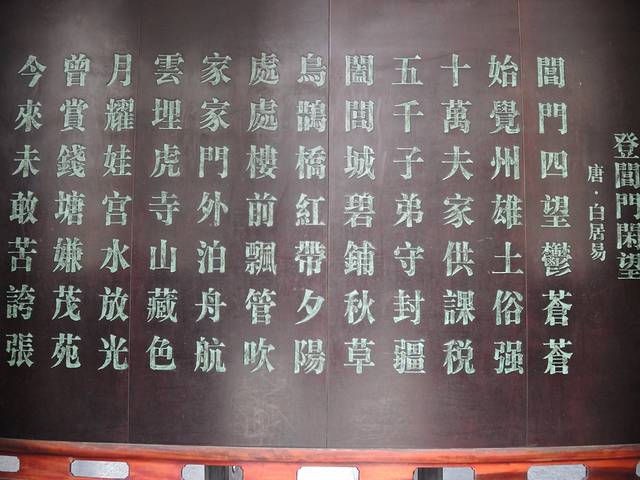 登閶門閑望
唐·白居易
閶門四望鬱蒼蒼
始覺州雄土俗强
十萬夫家供課税
五千子弟守封疆
闔閭城碧鋪秋草
烏鵲橋紅帶夕陽
處處樓前飄管吹
家家門外泊舟航
雲埋虎寺山藏色
月耀娃宮水放光
曾賞錢塘嫌茂苑
今來未敢苦誇張